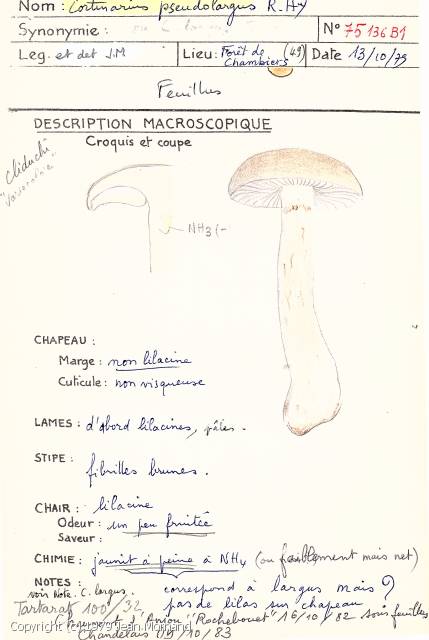 Nom : Cortinarius pseudolargus R. Hy
Synonymie :
N° 75136B1
Leg. et det J.M
Lieu : Forêt de Chambiers (49)
Date 13/10/75
Feuillus
DESCRIPTION MACROSCOPIQUE
Croquis et coupe
cliduchi
NH3 (-
CHAPEAU :
Marge : non lilacine
Cuticule : non visqueuse
LAMES : d'abord lilacines, pâles.
STIPE :
fibrilles brunes.
CHAIR : lilacine
Odeur : un peu fruitée
Saveur :
CHIMIE : jaunit à peine à NH4 (ou faiblement mais net)
NOTES : correspond à largus mais ?
voir Note. C. largus. pas de lilas sur chapeau
Tartarat 100/32
Anjou "Rochebouet" 16/10/82 sous feuillus
Chandelais 09/10/83
Copyright (c) 1979 Jean Mornand